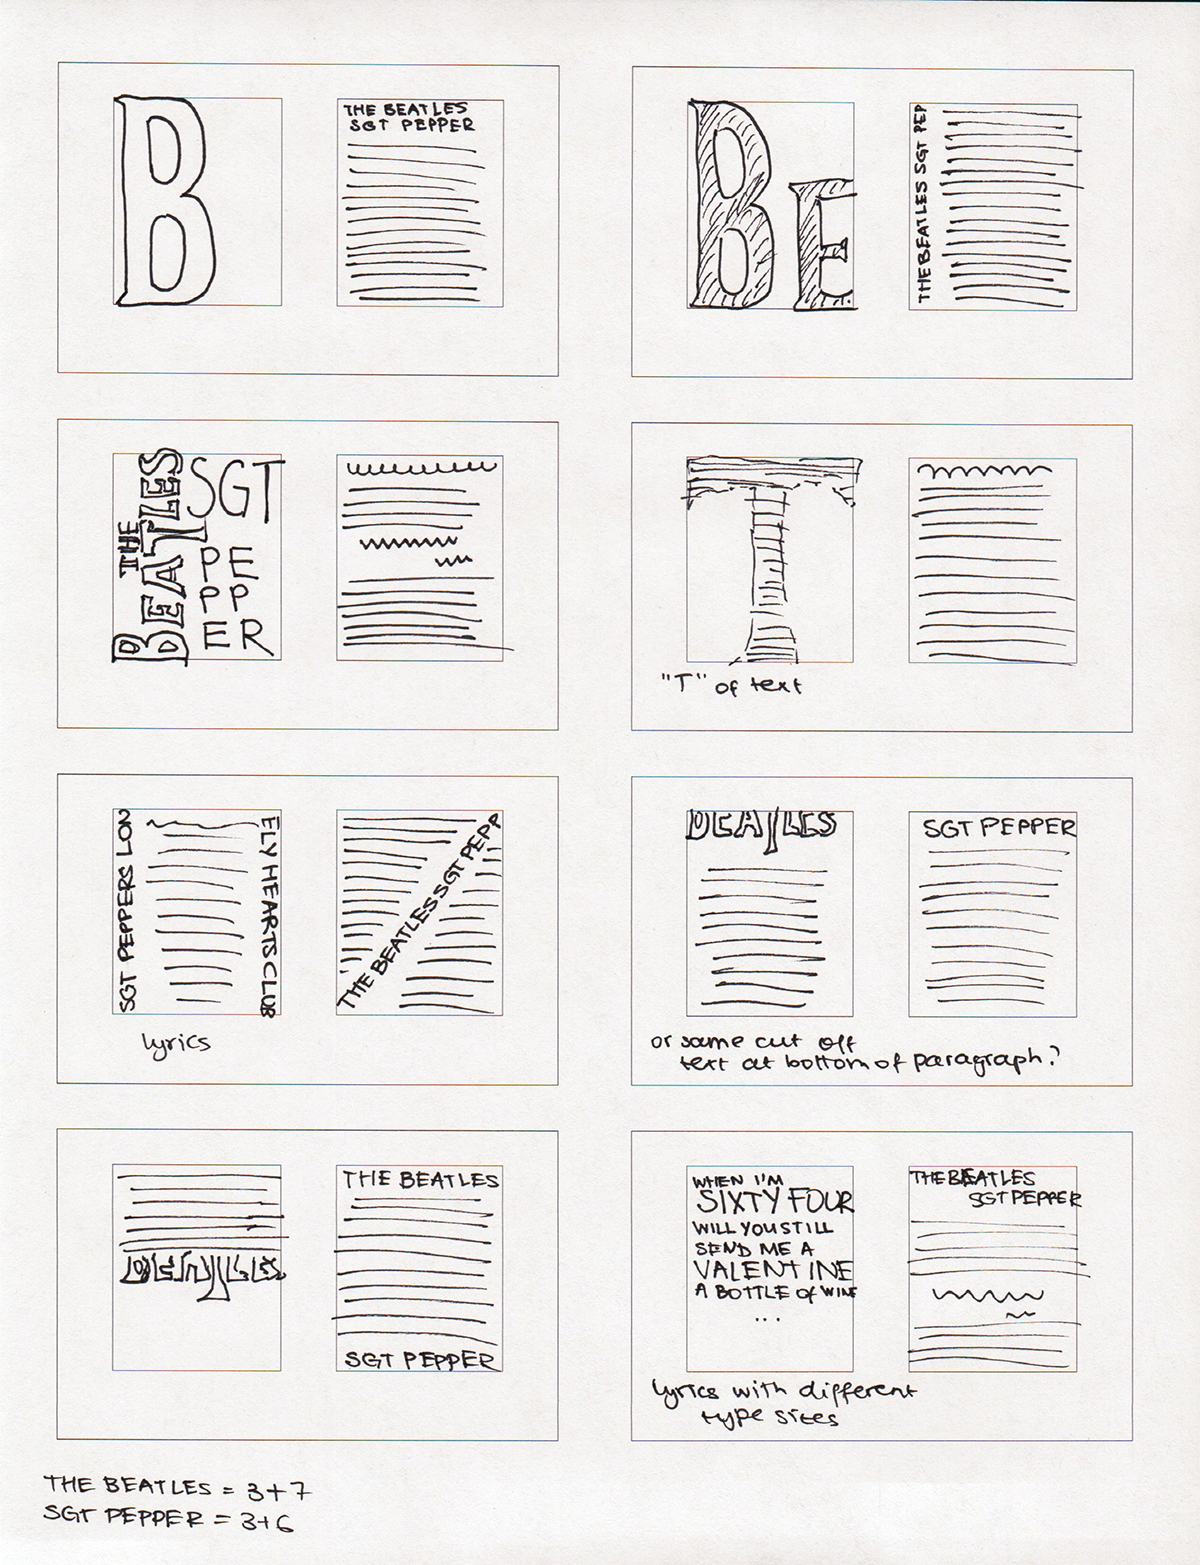 B
THE BEATLES
SGT PEPPER
BE
THE BEATLES SGT PEP
THE
BEATLES
SGT
PE
PP
ER
T
"T" of text
SGT PEPPERS LON
ELY HEARTS CLUB
THE BEATLES SGT PEPP
lyrics
BEATLES
SGT PEPPER
or same cut off
text at bottom of paragraph?
BEATLES
THE BEATLES
SGT PEPPER
WHEN I'M
SIXTY FOUR
WILL YOU STILL
SEND ME A
VALENTINE
A BOTTLE OF WINE
...
THE BEATLES
SGT PEPPER
lyrics with different
type sizes
THE BEATLES = 3+7
SGT PEPPER = 3+6